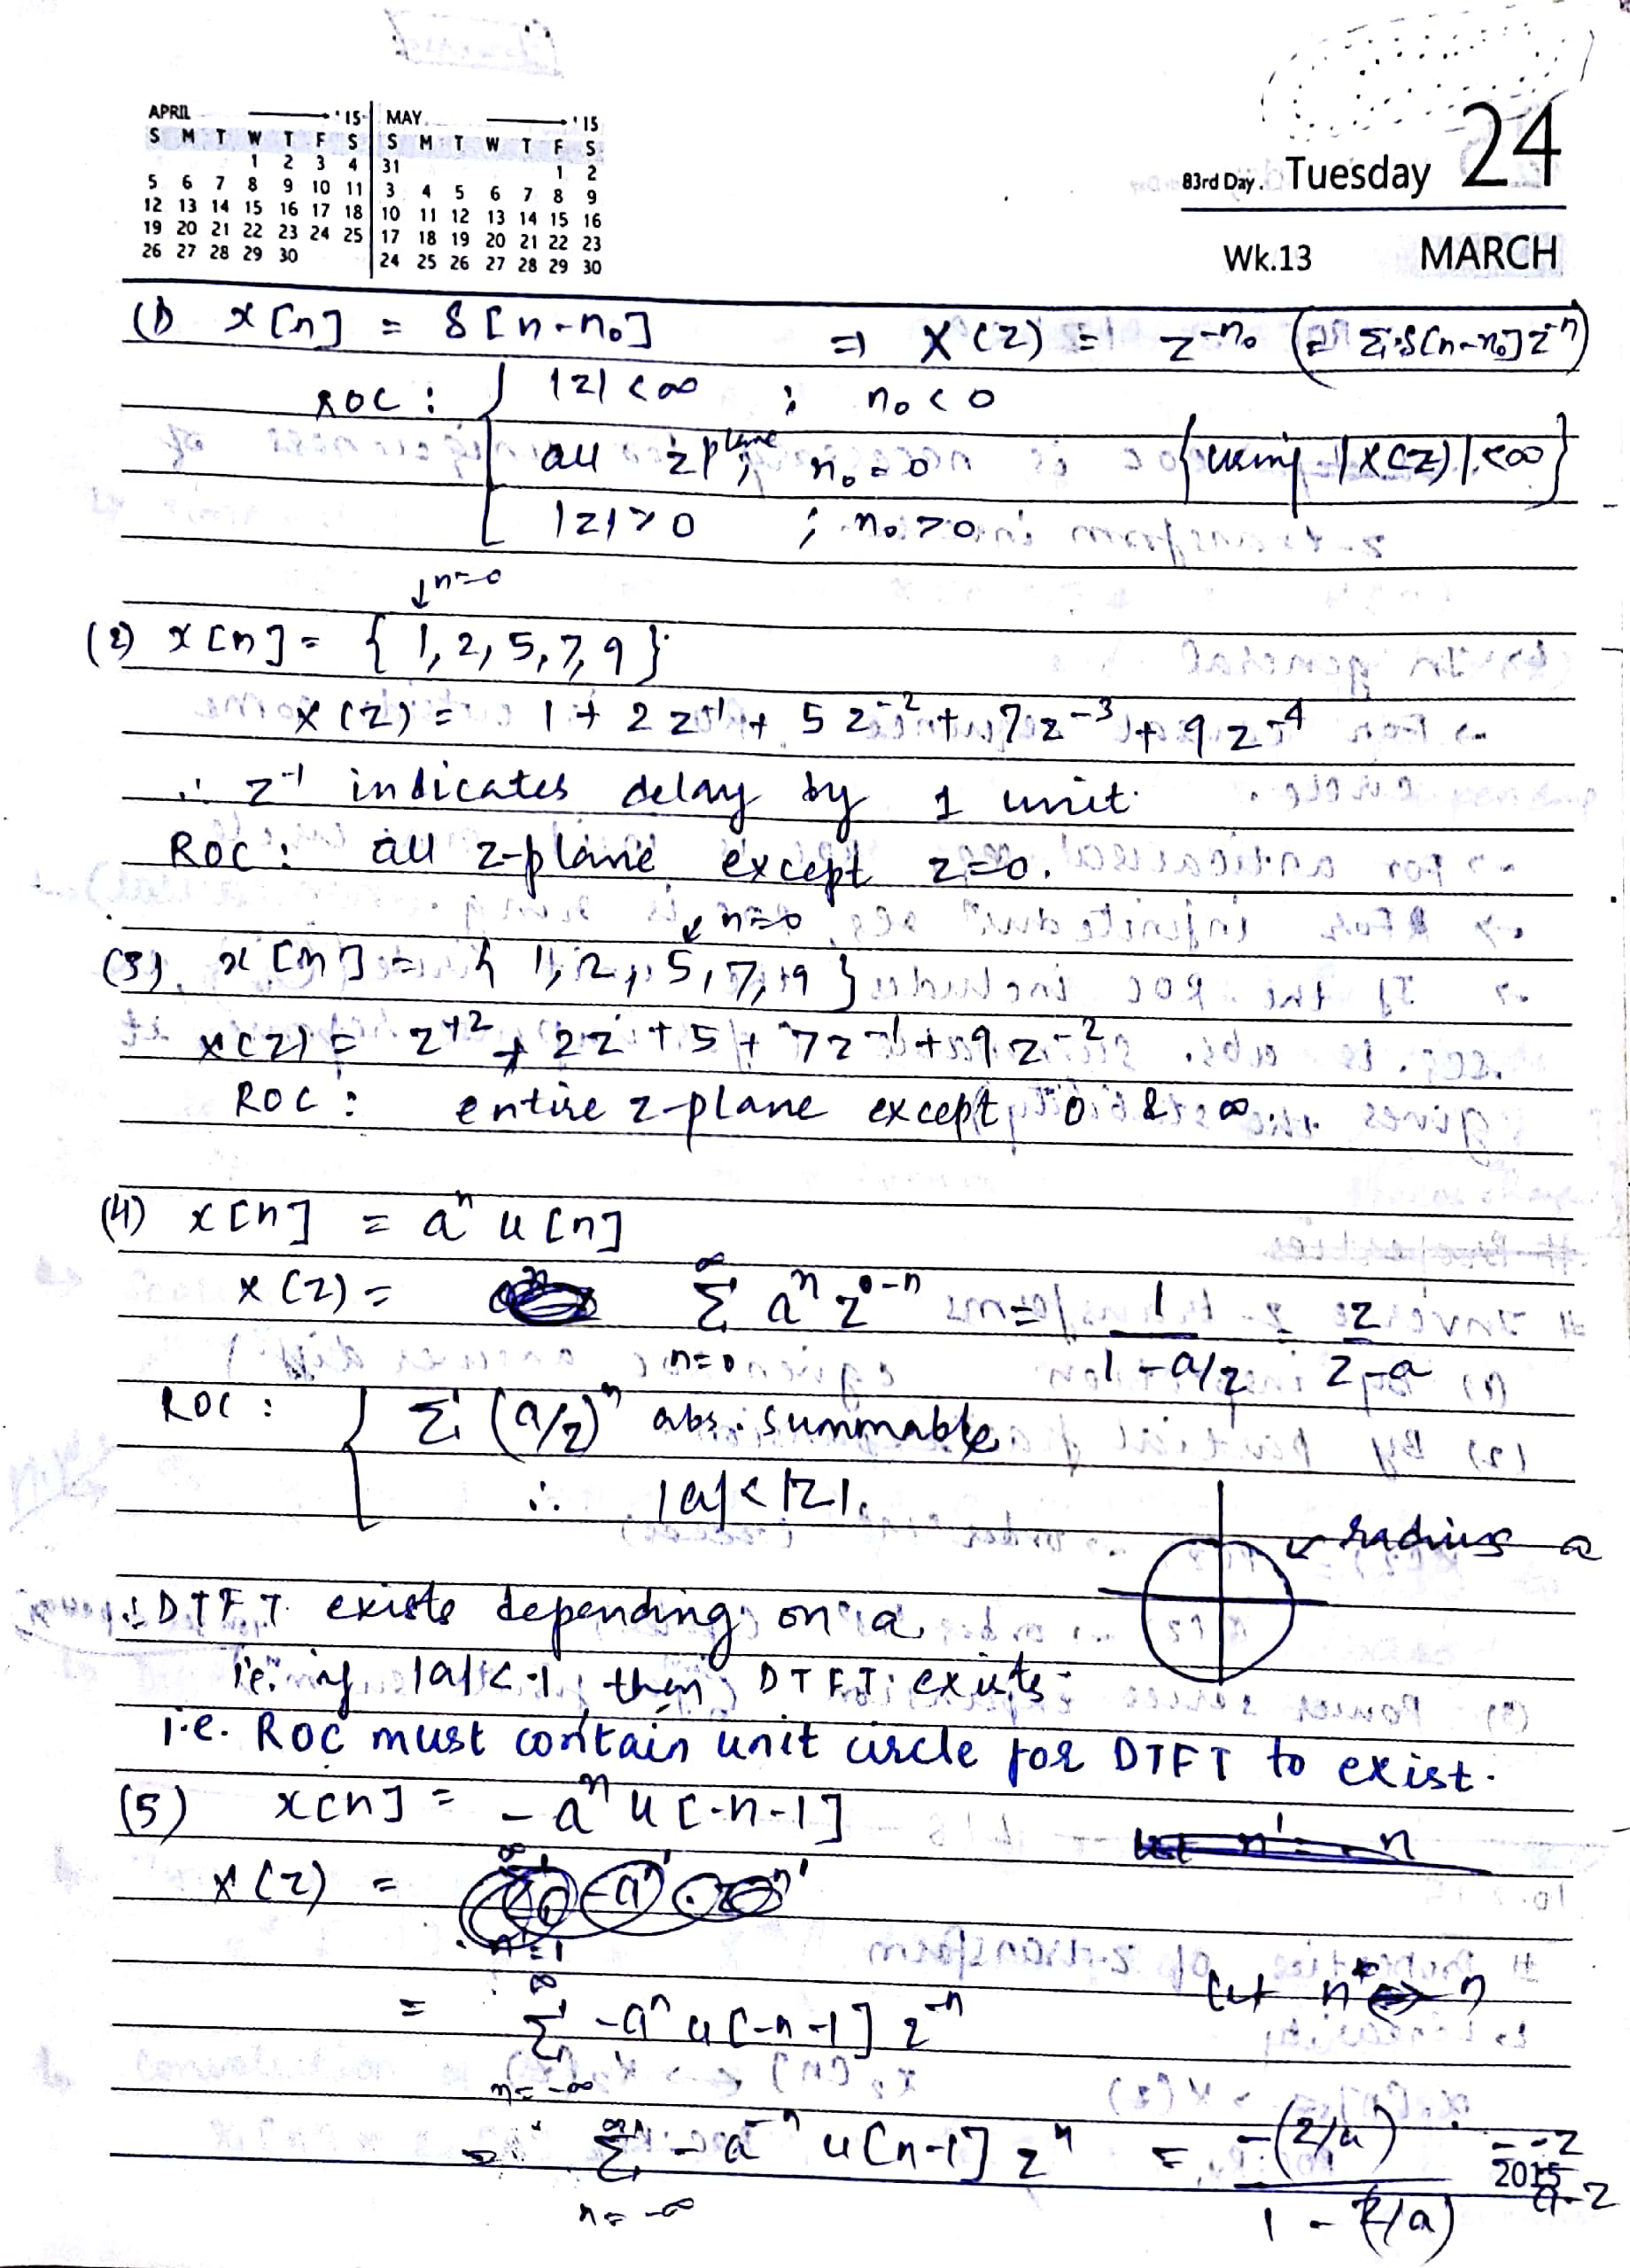 APRIL '15 MAY '15
S M T W T F S S M T W T F S
1 2 3 4 31 1 2
5 6 7 8 9 10 11 3 4 5 6 7 8 9
12 13 14 15 16 17 18 10 11 12 13 14 15 16
19 20 21 22 23 24 25 17 18 19 20 21 22 23
26 27 28 29 30 24 25 26 27 28 29 30
83rd Day. Tuesday 24
Wk.13 MARCH
(1) x[n] = δ[n-n₀] ⇒ X(z) = z^-n₀ (= Σ δ[n-n₀] z^-n)
ROC : { |z| < ∞ ; n₀ < 0
all z plane ; n₀ = 0 {using |X(z)| < ∞}
|z| > 0 ; n₀ > 0
↓ n=0
(2) x[n] = { 1, 2, 5, 7, 9 }
X(z) = 1 + 2z^-1 + 5z^-2 + 7z^-3 + 9z^-4
∴ z^-1 indicates delay by 1 unit.
ROC : all z-plane except z=0.
↙ n=0
(3) x[n] = { 1, 2, 5, 7, 9 }
X(z) = z^+2 + 2z + 5 + 7z^-1 + 9z^-2
ROC : entire z-plane except 0 & ∞.
(4) x[n] = a^n u[n]
X(z) = Σ_{n=0}^{∞} a^n z^-n = 1/(1 - a/z) = z/(z-a)
ROC : { Σ (a/z)^n abs. summable
∴ |a| < |z|.
↙ radius a
∴ DTFT exists depending on a
i.e. if |a| < 1, then DTFT exists.
i.e. ROC must contain unit circle for DTFT to exist.
(5) x[n] = -a^n u[-n-1]
X(z) =
= Σ_{n=-∞}^{∞} -a^n u[-n-1] z^-n
= Σ_{n=-∞}^{∞} -a^-n u[n-1] z^n = -(z/a)/(1 - (z/a)) = -z/(a-z)
2015